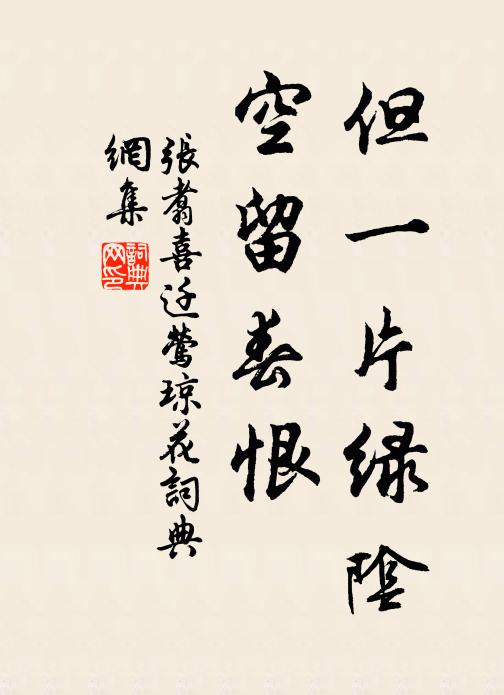 但一片绿陰
空留春恨
張翥喜迁鶯琼花詞典
網集
詞典
网印